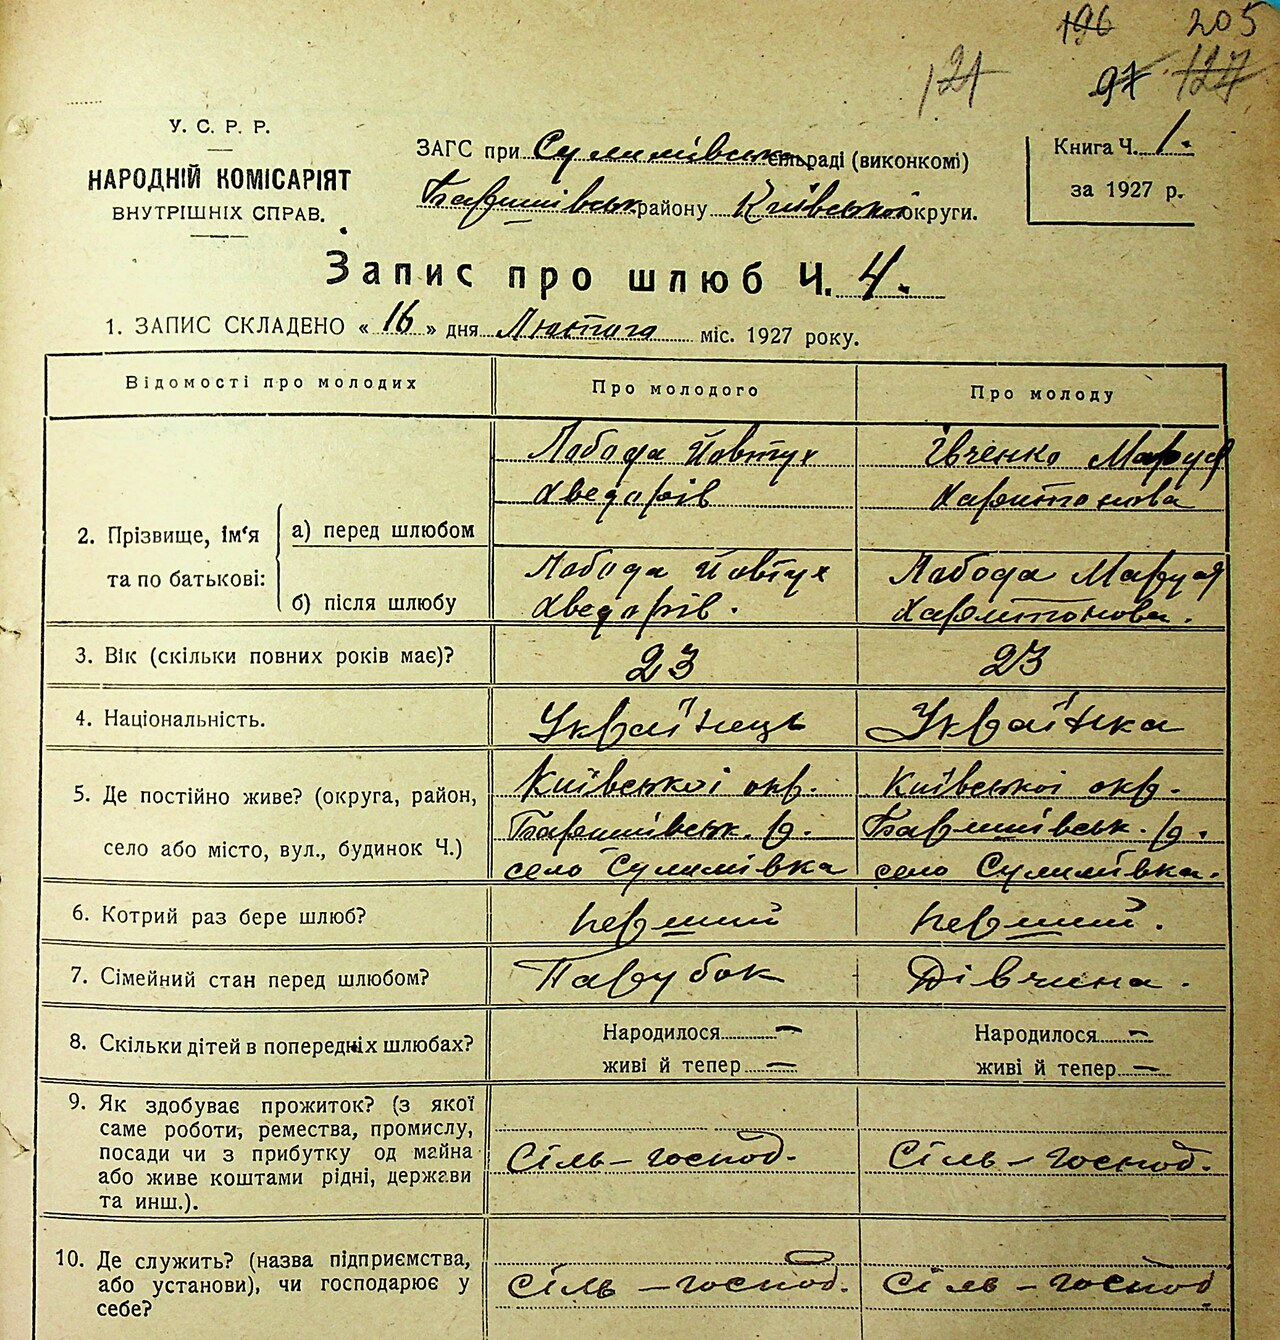 196 205
121 97 127
У. С. Р. Р.
НАРОДНІЙ КОМІСАРІЯТ
ВНУТРІШНІХ СПРАВ.
ЗАГС при Сулимівськ сільраді (виконкомі)
Баришівськ району Київської округи.
Книга Ч. 1.
за 1927 р.
Запис про шлюб Ч. 4.
1. ЗАПИС СКЛАДЕНО « 16 » дня Лютого міс. 1927 року.
Відомості про молодих
Про молодого
Про молоду
2. Прізвище, ім'я та по батькові:
а) перед шлюбом
Лобода Йовтух
Хведорів
Івченко Маруся
Харитонова
б) після шлюбу
Лобода Йовтух
Хведорів.
Лобода Маруся
Харитонова.
3. Вік (скільки повних років має)?
23
23
4. Національність.
Українець
Українка
5. Де постійно живе? (округа, район,
село або місто, вул., будинок Ч.)
Київської окр.
Баришівськ. р.
село Сулимівка
Київської окр.
Баришівськ. р.
село Сулимівка.
6. Котрий раз бере шлюб?
первший
первший.
7. Сімейний стан перед шлюбом?
Парубок
Дівчина.
8. Скільки дітей в попередніх шлюбах?
Народилося —
живі й тепер —
Народилося —
живі й тепер —
9. Як здобуває прожиток? (з якої
саме роботи, ремества, промислу,
посади чи з прибутку од майна
або живе коштами рідні, держави
та инш.).
Сіль-господ.
Сіль-господ.
10. Де служить? (назва підприємства,
або установи), чи господарює у
себе?
Сіль-господ.
Сіль-господ